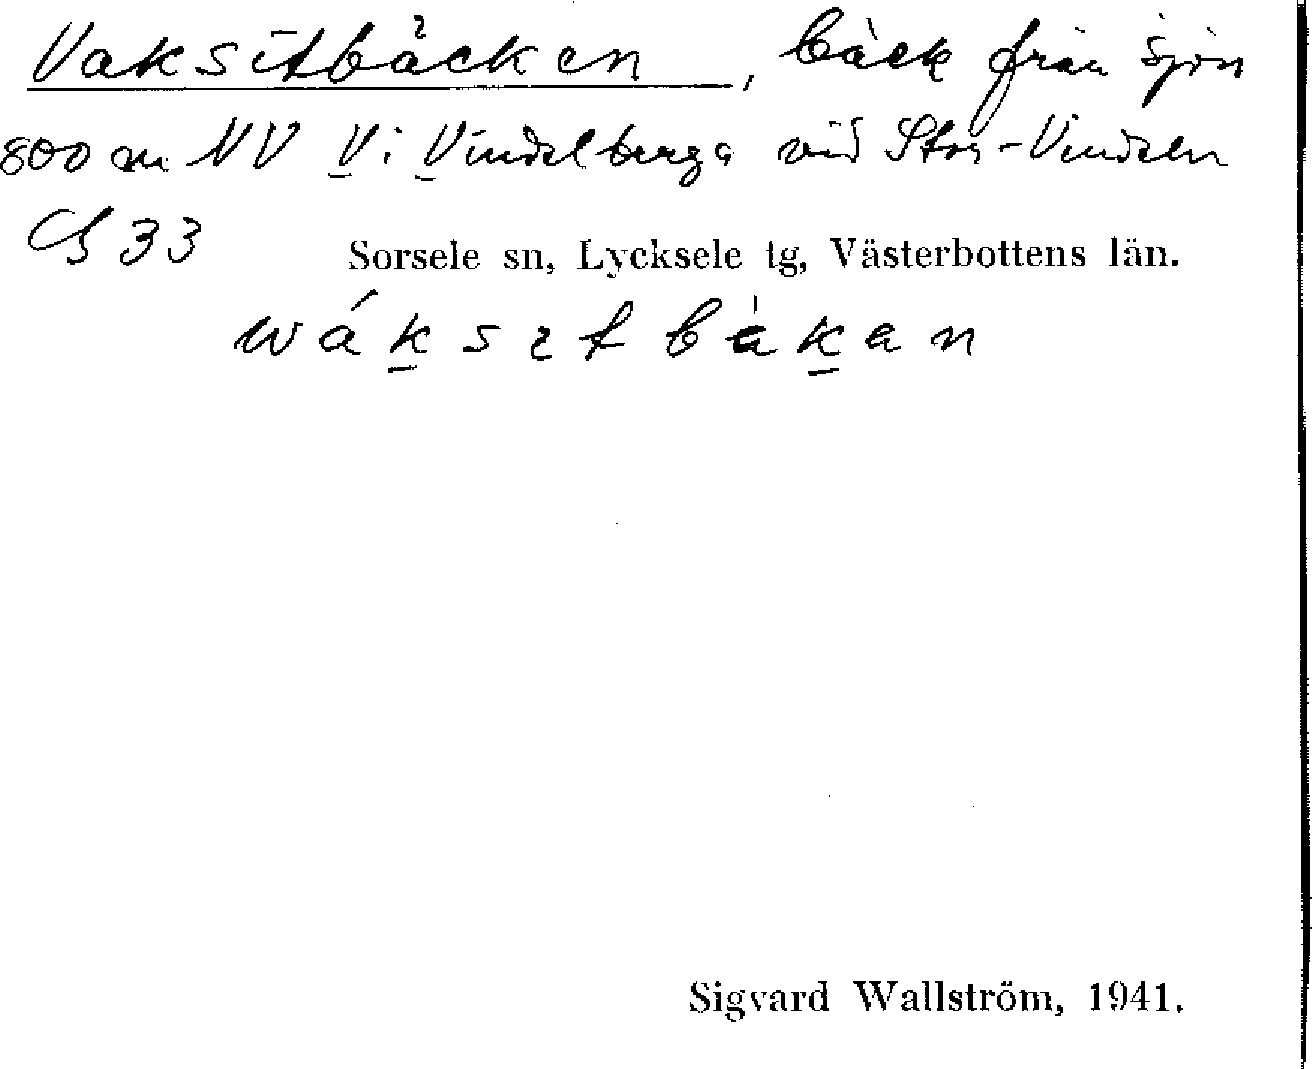 Vaksitbäcken, bäck från sjön
800 m NV V i Vindelberga vid Stor-Vindeln
33 Sorsele sn, Lycksele tg, Västerbottens län.
Sigvard Wallström, 1941.